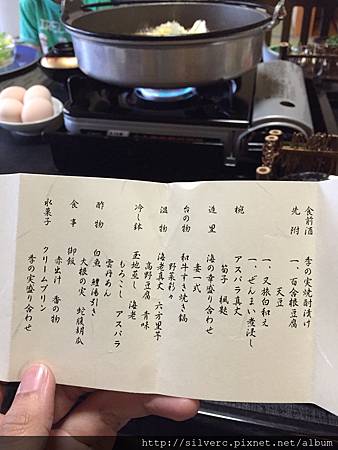 食前酒 季の実焼酎漬け
先附 一、百合根豆腐
天豆
一、又旅白和え
一、ぜんまい煮浸し
椀 アスパラ真丈
筍子 楓麩
造里 海の幸盛り合わせ
妻一式
台の物 和牛すき焼き鍋
野菜彩々
温物 海老真丈 六方里芋
高野豆腐 青味
冷し鉢 玉地蒸し 海老
もろこし アスパラ
雲丹あん
酢物 白魚 鯉湯引き
大根の実 蛇腹胡瓜
食事 御飯
赤出汁 香の物
水菓子 クリームプリン
季の実盛り合わせ
http://silverc.pixnet.net/album